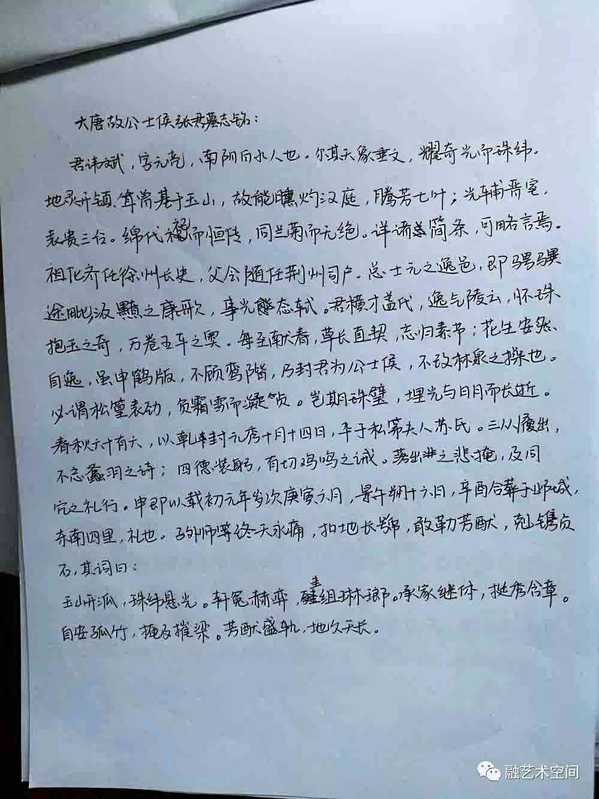 大唐故公士侯张君墓志铭：
君讳斌，字元亮，南阳白水人也。尔其天象垂文，耀奇光而珠纬。
地灵开镇，笃曾基于玉山，故能曛灼汉庭，腾芳七叶；光车甫晋室，
表贵三台。绵代而恒传，同兰菊而无绝。详诸简条，可略言焉。
祖化齐任徐州长史，父会随任荆州司户。总士元之逸邑，即骥
途毗汲黯之康歌，事光态轼。君横才盖代，逸气陵云，怀珠
抱玉之奇，万卷五车之奥。每至献春，尊长直契，志归素书；花生安然，
自逸，虽申鹤版，不顾鸾阶，乃封君为公士侯，不改林泉之操也。
必谓松篁表劲，负霜雪而凝贞。岂期珠璧，埋光与日月而长逝。
春秋六十有六，以乾封元年十月十四日，卒于私第夫人苏氏。三从爰出，
不忘螽羽之诗；四德装躬，有切鸡鸣之诫。之悲掩，及同
穴之礼行。申即以载初元年岁次庚寅六月，景午朔十六日，辛酉合葬于邺城，
东南四里，礼也。孙师等终天永痛，扣地长号，敢勒芳猷，剋镌贞
石，其词曰：
玉山开派，珠纬悬光。轩冕赫弈，珪组琳瑯。承家继体，挺秀含章。
自安孤竹，掩及摧梁。芳猷盛轨，地久天长。
融艺术空间